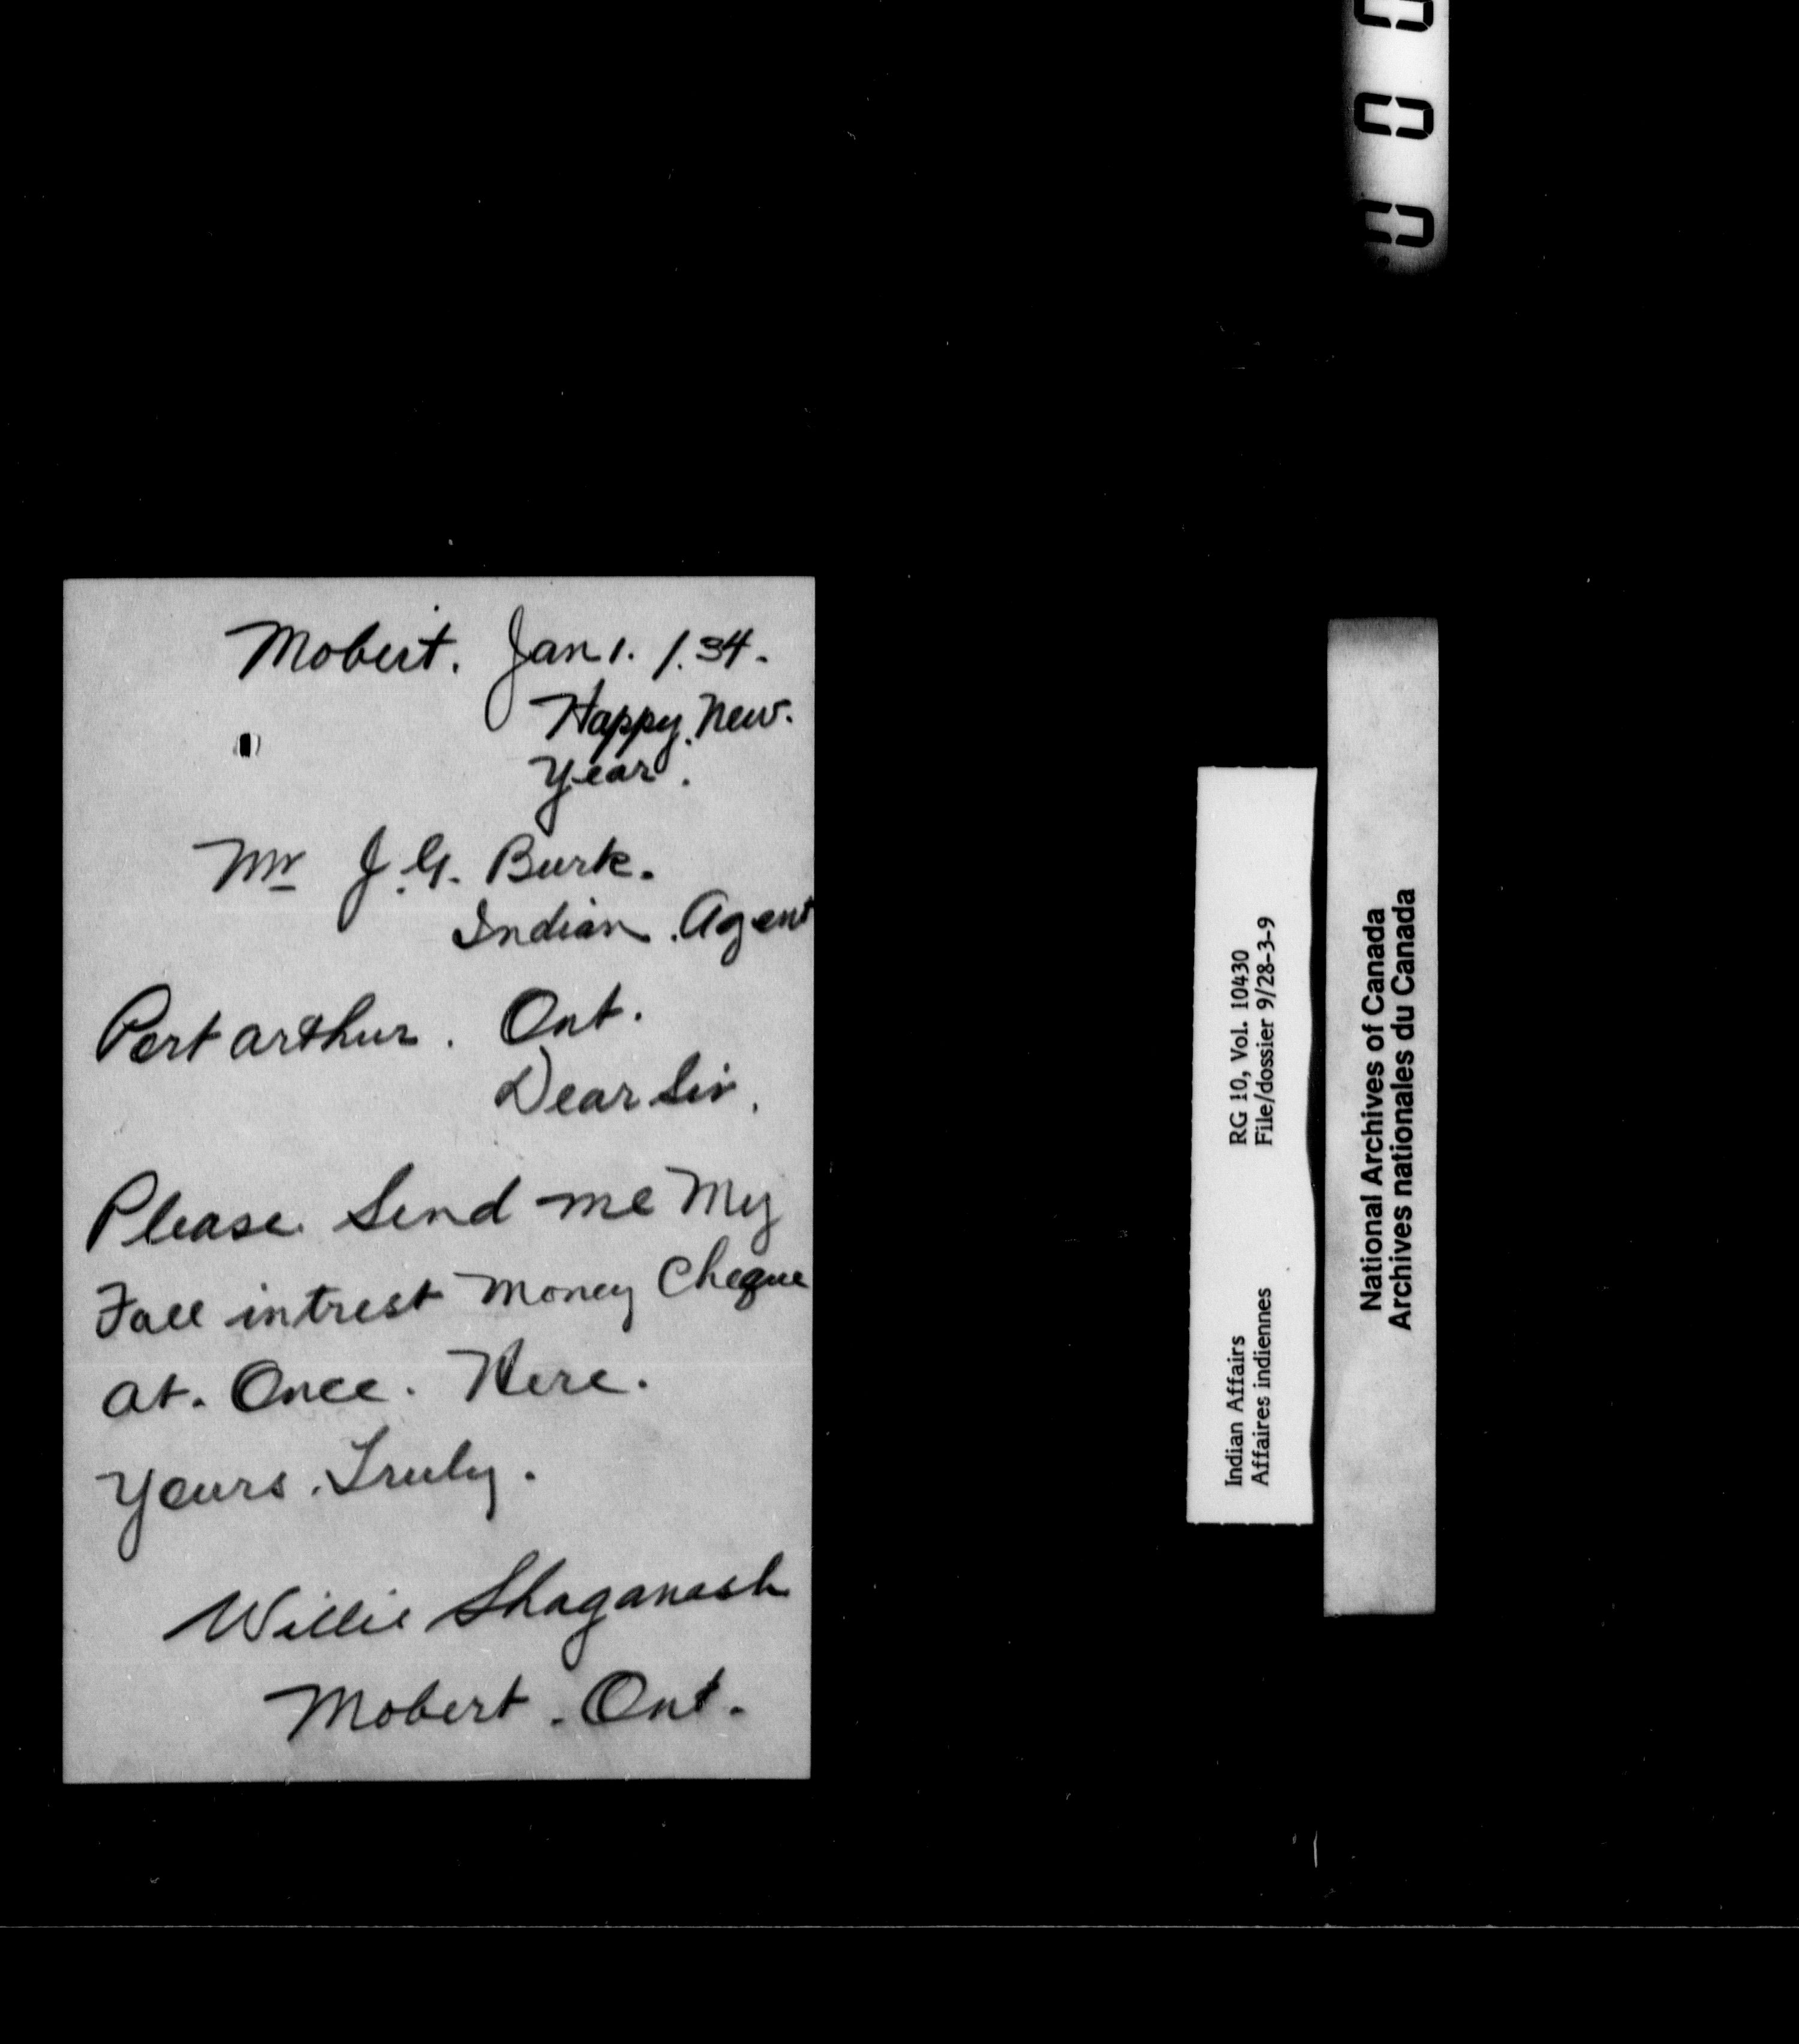 Mobert. Jan 1. 1.34.
Happy. New.
Year.
Mr J.G. Burk.
Indian. Agent
Port arthur. Ont.
Dear Sir.
Please. Send me My
Fall intrest Money Cheque
at. Once. Here.
Yours. Truly.
Willie Shaganash
Mobert. Ont.
Indian Affairs RG 10, Vol. 10430
Affaires indiennes File/dossier 9/28-3-9
National Archives of Canada
Archives nationales du Canada